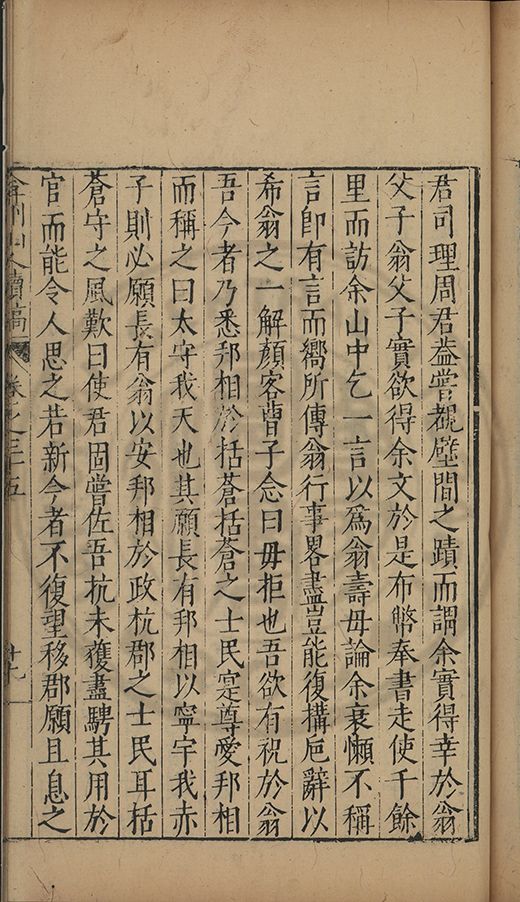 君司理周君益嘗覩壁間之蹟而謂余實得幸於翁
父子翁父子實欲得余文於是布幣奉書走使千餘
里而訪余山中乞一言以爲翁壽毋論余衰懶不稱
言卽有言而嚮所傳翁行事畧盡豈能復搆巵辭以
希翁之一解顔客曹子念曰毋拒也吾欲有祝於翁
吾今者乃悉邦相於括蒼括蒼之士民寔尊愛邦相
而稱之曰太守我天也其願長有邦相以寧宇我赤
子則必願長有翁以安邦相於政杭郡之士民耳括
蒼守之風歎曰使君固嘗佐吾杭未獲盡騁其用於
官而能令人思之若新今者不復望移郡願且息之
弇州山人續稿
卷之三十五
十九